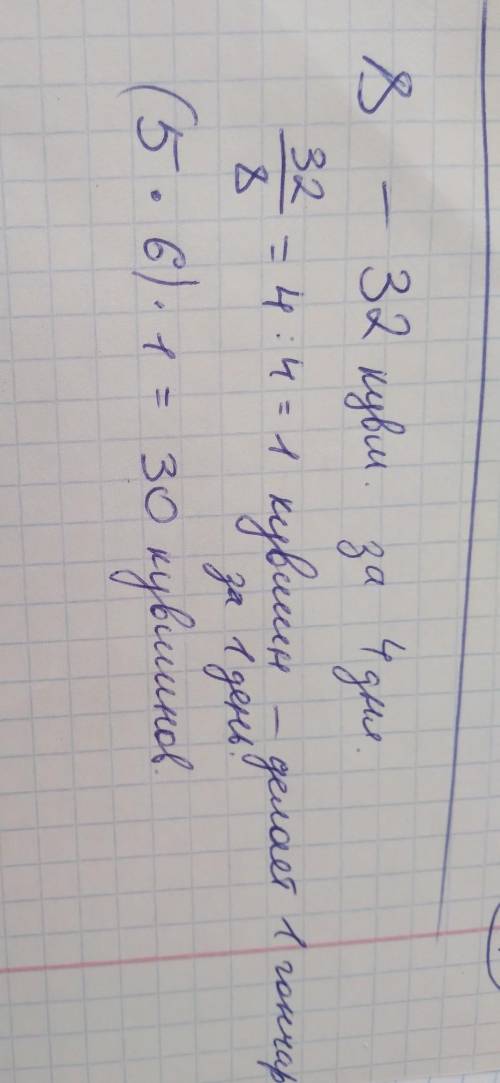 8 – 32 кувш. за 4 дня.
32/8 = 4 : 4 = 1 кувшин – делает 1 гончар
за 1 день.
(5 · 6) · 1 = 30 кувшинов.